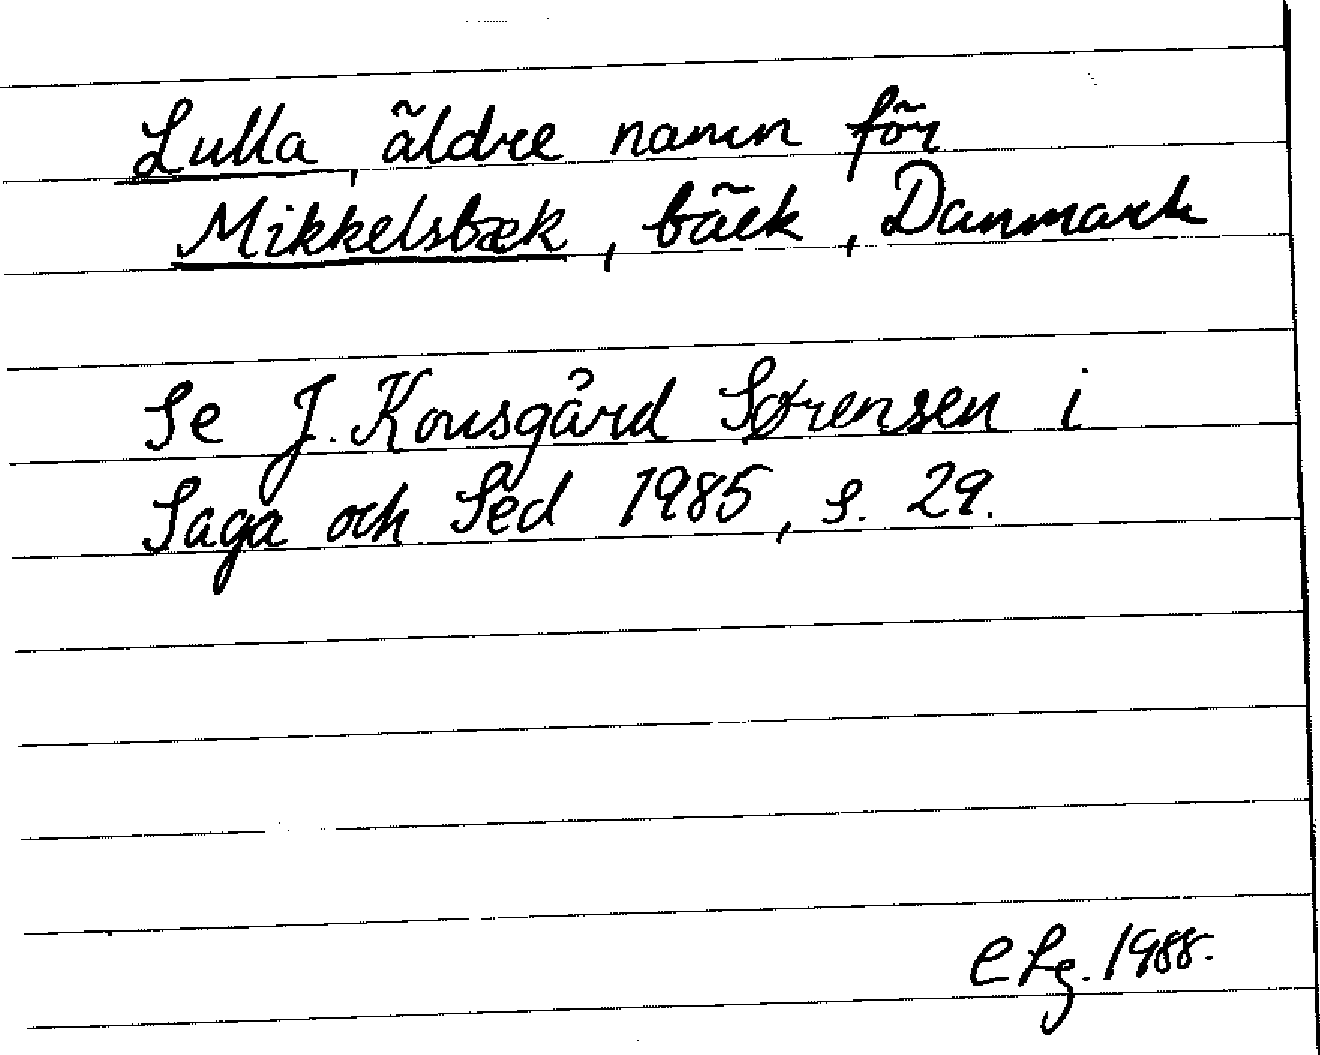 Lulla, äldre namn för
Mikkelsbæk, bäck, Danmark
Se J. Kousgård Sørensen i
Saga och Sed 1985, s. 29.
1988.